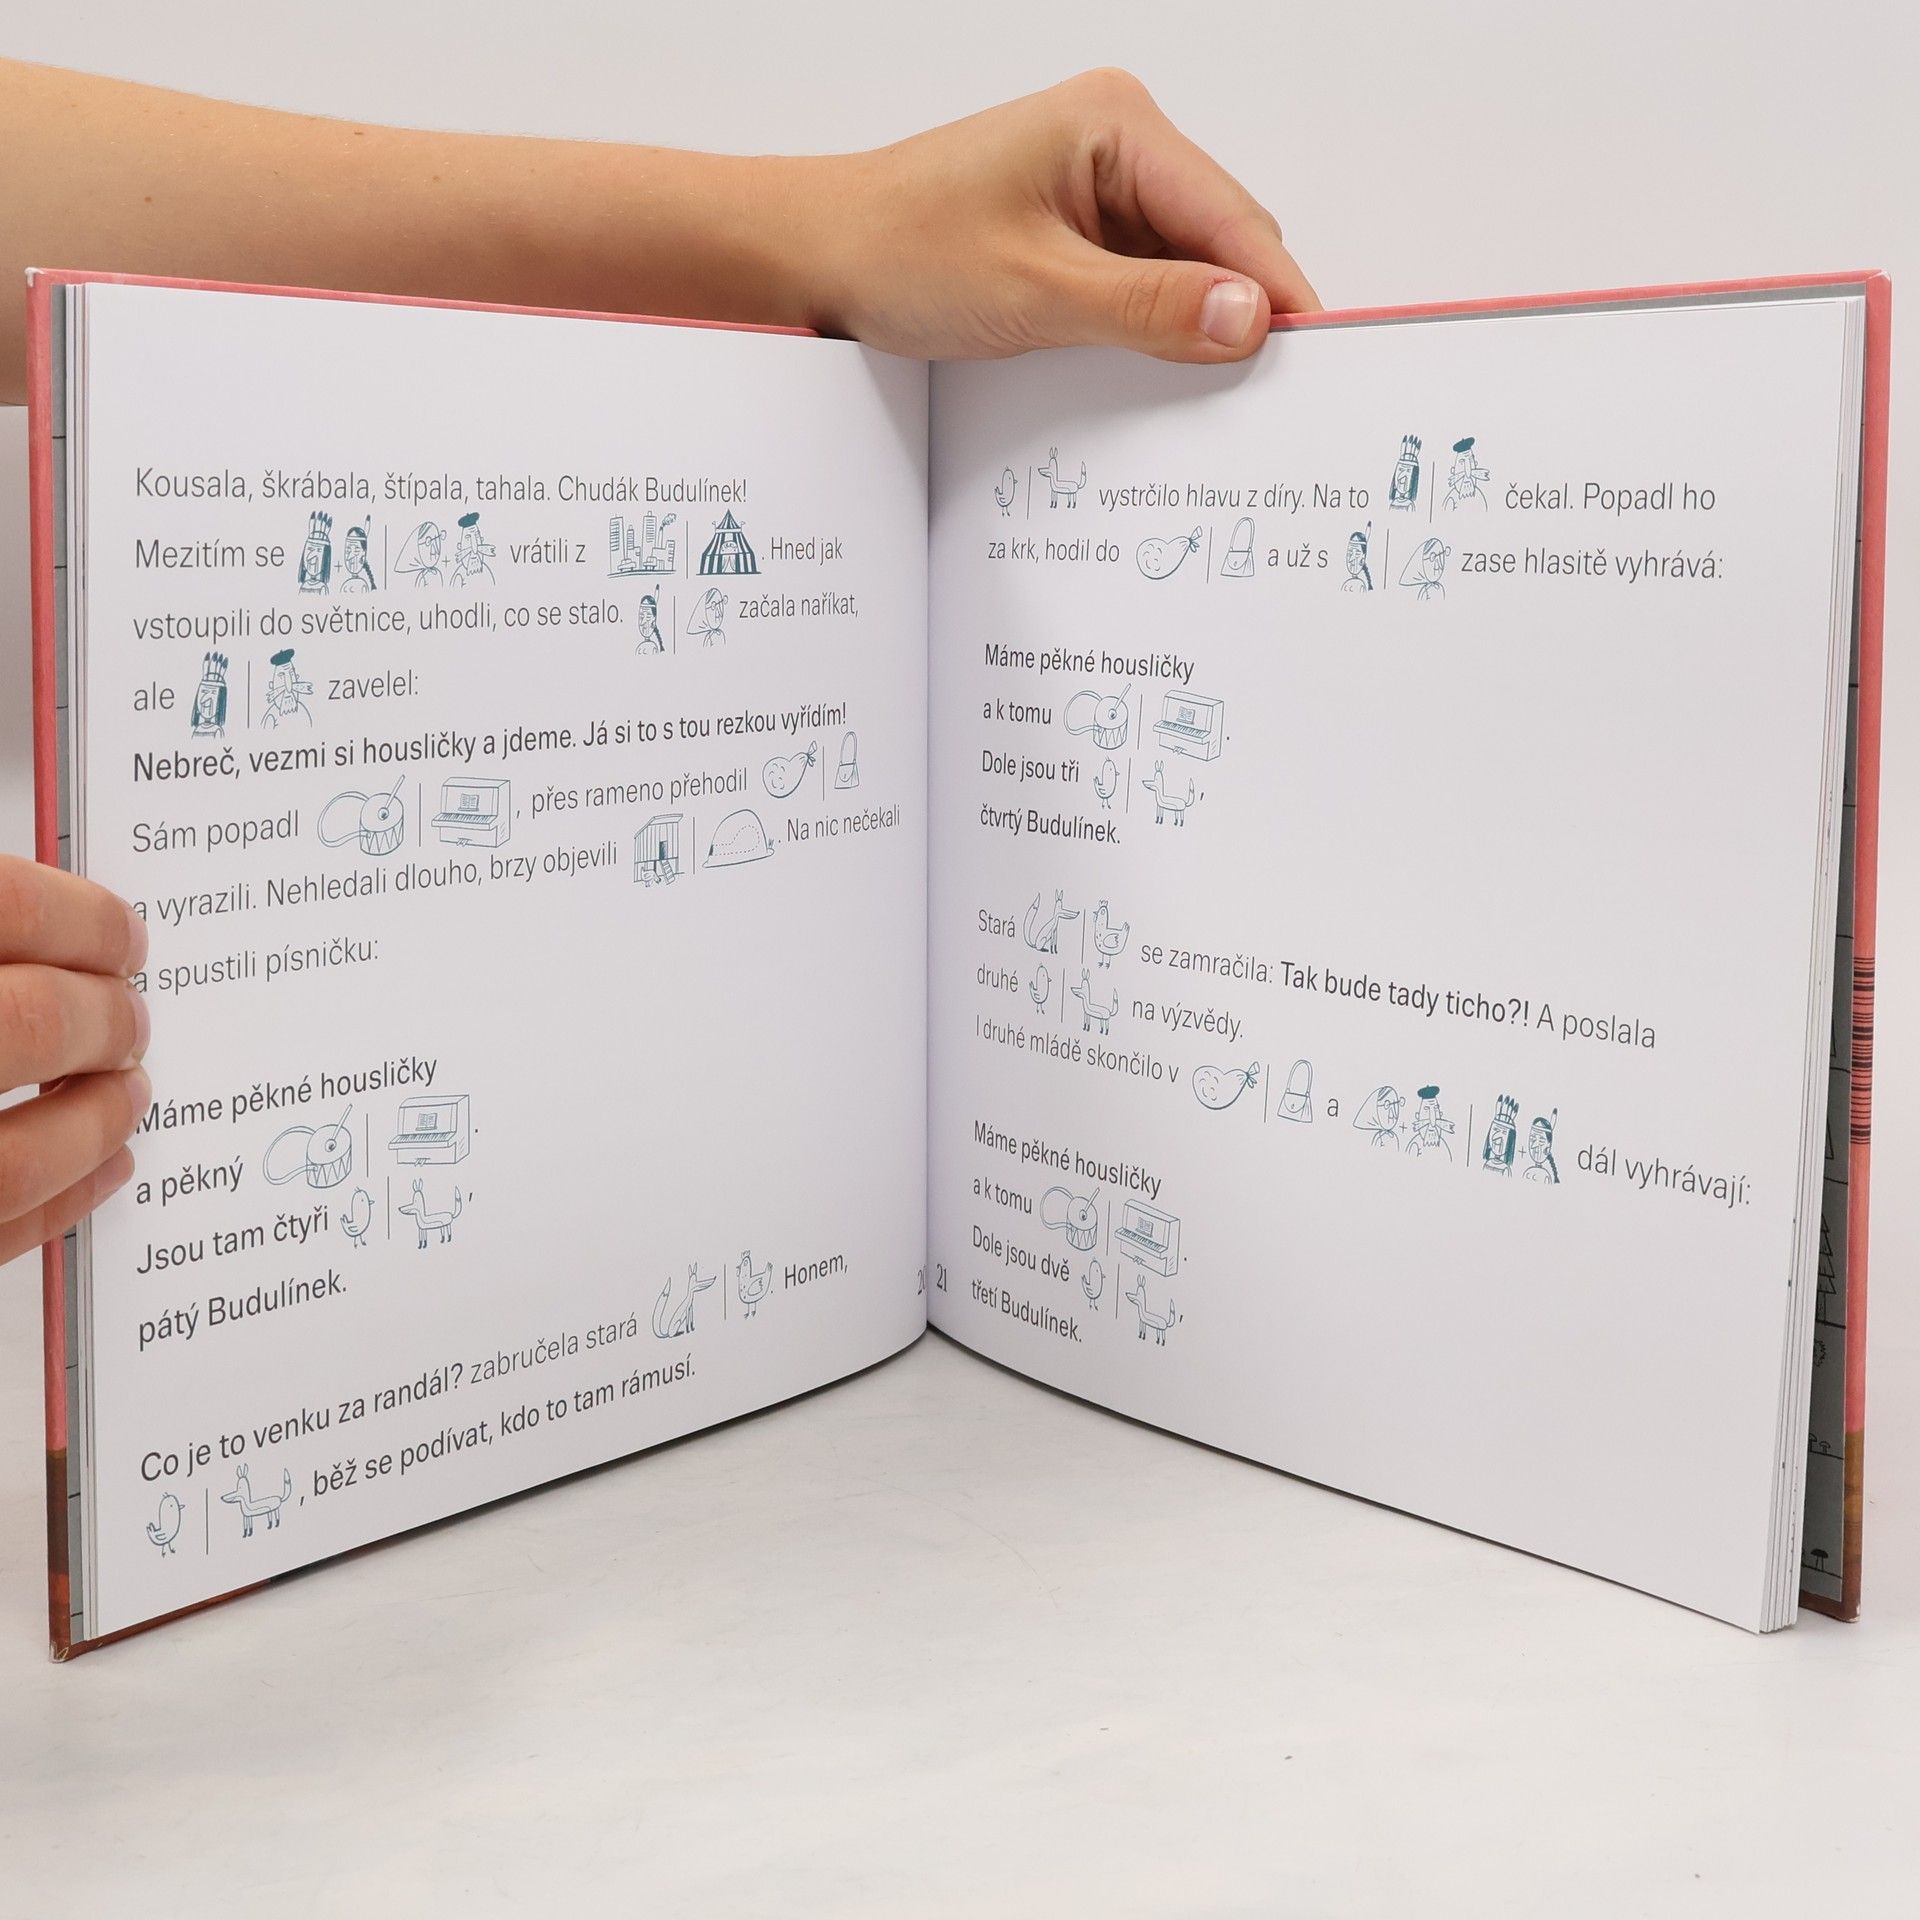 Kousala, škrábala, štípala, tahala. Chudák Budulínek!
Mezitím se vrátili z . Hned jak
vstoupili do světnice, uhodli, co se stalo. začala naříkat,
ale zavelel:
Nebreč, vezmi si housličky a jdeme. Já si to s tou rezkou vyřídím!
Sám popadl , přes rameno přehodil
a vyrazili. Nehledali dlouho, brzy objevili . Na nic nečekali
a spustili písničku:
Máme pěkné housličky
a pěkný .
Jsou tam čtyři ,
pátý Budulínek.
Co je to venku za randál? zabručela stará . Honem,
, běž se podívat, kdo to tam rámusí.
20
vystrčilo hlavu z díry. Na to čekal. Popadl ho
za krk, hodil do a už s zase hlasitě vyhrává:
Máme pěkné housličky
a k tomu .
Dole jsou tři ,
čtvrtý Budulínek.
Stará se zamračila: Tak bude tady ticho?! A poslala
druhé na výzvědy.
I druhé mládě skončilo v a dál vyhrávají:
Máme pěkné housličky
a k tomu .
Dole jsou dvě ,
třetí Budulínek.
21